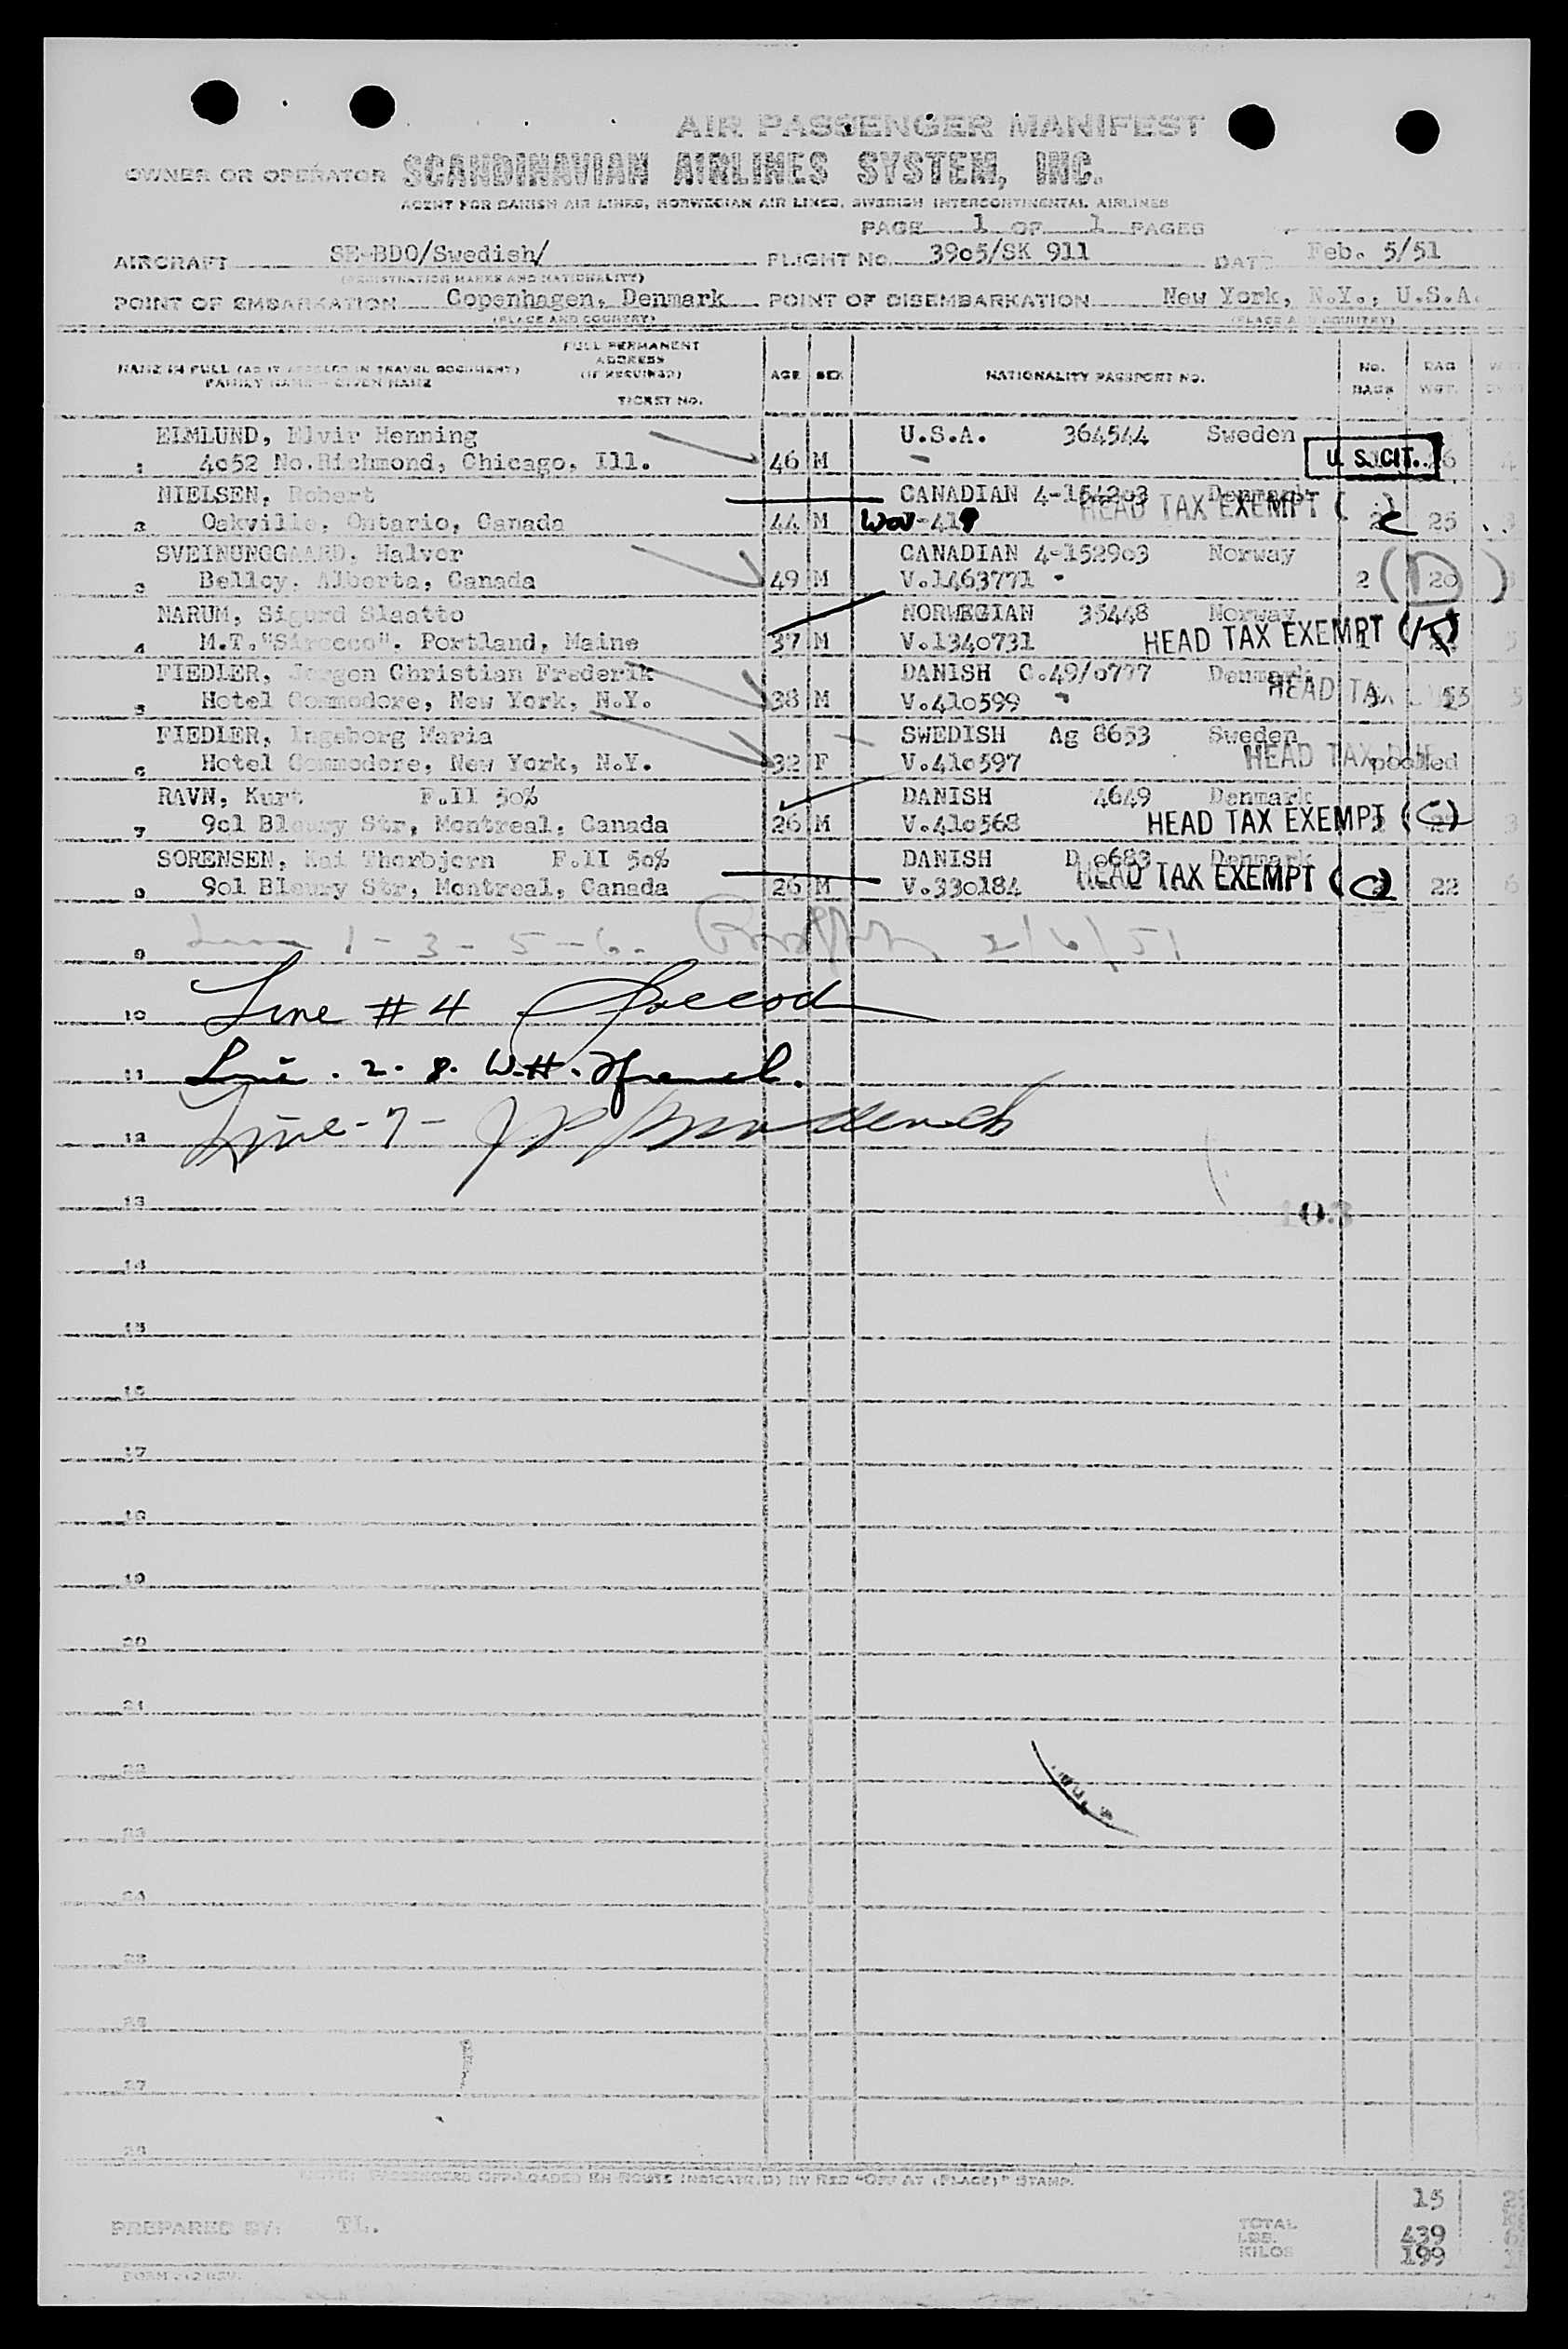 AIR PASSENGER MANIFEST
OWNER OR OPERATOR SCANDINAVIAN AIRLINES SYSTEM, INC.
AGENT FOR DANISH AIR LINES, NORWEGIAN AIR LINES, SWEDISH INTERCONTINENTAL AIRLINES
PAGE 1 OF 1 PAGES
AIRCRAFT SE-BDO/Swedish/ FLIGHT No. 39c5/SK 911 DATE Feb. 5/51
(REGISTRATION MARKS AND NATIONALITY)
POINT OF EMBARKATION Copenhagen, Denmark POINT OF DISEMBARKATION New York, N.Y., U.S.A.
(PLACE AND COUNTRY) (PLACE AND COUNTRY)
NAME IN FULL (AS IT APPEARS IN TRAVEL DOCUMENT) FAMILY NAME - GIVEN NAME FULL PERMANENT ADDRESS (IF REQUIRED) TICKET NO. AGE SEX NATIONALITY PASSPORT NO. No. BAGS BAG WGT.
ELMLUND, Elvir Henning U.S.A. 364544 Sweden
1 4c52 No.Richmond, Chicago, Ill. 46 M U. S. CIT.
NIELSEN, Robert CANADIAN 4-1542c3 Denmark
2 Oakville, Ontario, Canada 44 M HEAD TAX EXEMPT ( 2 25
SVEINUNGGAARD, Halvor CANADIAN 4-1529c3 Norway
3 Belloy. Alberta, Canada 49 M V.1463771 2 (D) 20
NARUM, Sigurd Slaatto NORWEGIAN 35448 Norway
4 M.T."Sirocco". Portland, Maine 37 M V.134o731 HEAD TAX EXEMPT 1
FIEDLER, Jorgen Christian Frederik DANISH C.49/o777 Denmark
5 Hotel Commodore, New York, N.Y. 38 M V.41o599 HEAD TAX 55
FIEDLER, Ingeborg Maria SWEDISH Ag 8653 Sweden
6 Hotel Commodore, New York, N.Y. 32 F V.41o597 HEAD TAX DUE pooled
RAVN, Kurt F.II 5o% DANISH 4649 Denmark
7 9o1 Bleury Str, Montreal, Canada 26 M V.41o568 HEAD TAX EXEMPT (C)
SORENSEN, Kai Thorbjorn F.II 5o% DANISH D o683 Denmark
8 9o1 Bleury Str, Montreal, Canada 26 M V.33o184 HEAD TAX EXEMPT (C) 22
9 Line 1 - 3 - 5 - 6. 2/6/51
10 Line # 4
11 Line . 2 . 8. W.H.
12 Line - 7 -
13
103
14
15
16
17
18
19
20
21
22
23
24
25
26
27
28
NOTE: PASSENGERS OFF-LOADED EN ROUTE INDICATE(D) BY RED "OFF AT (PLACE)" STAMP.
15
PREPARED BY: TL. TOTAL
LBS. 439
KILOS 199